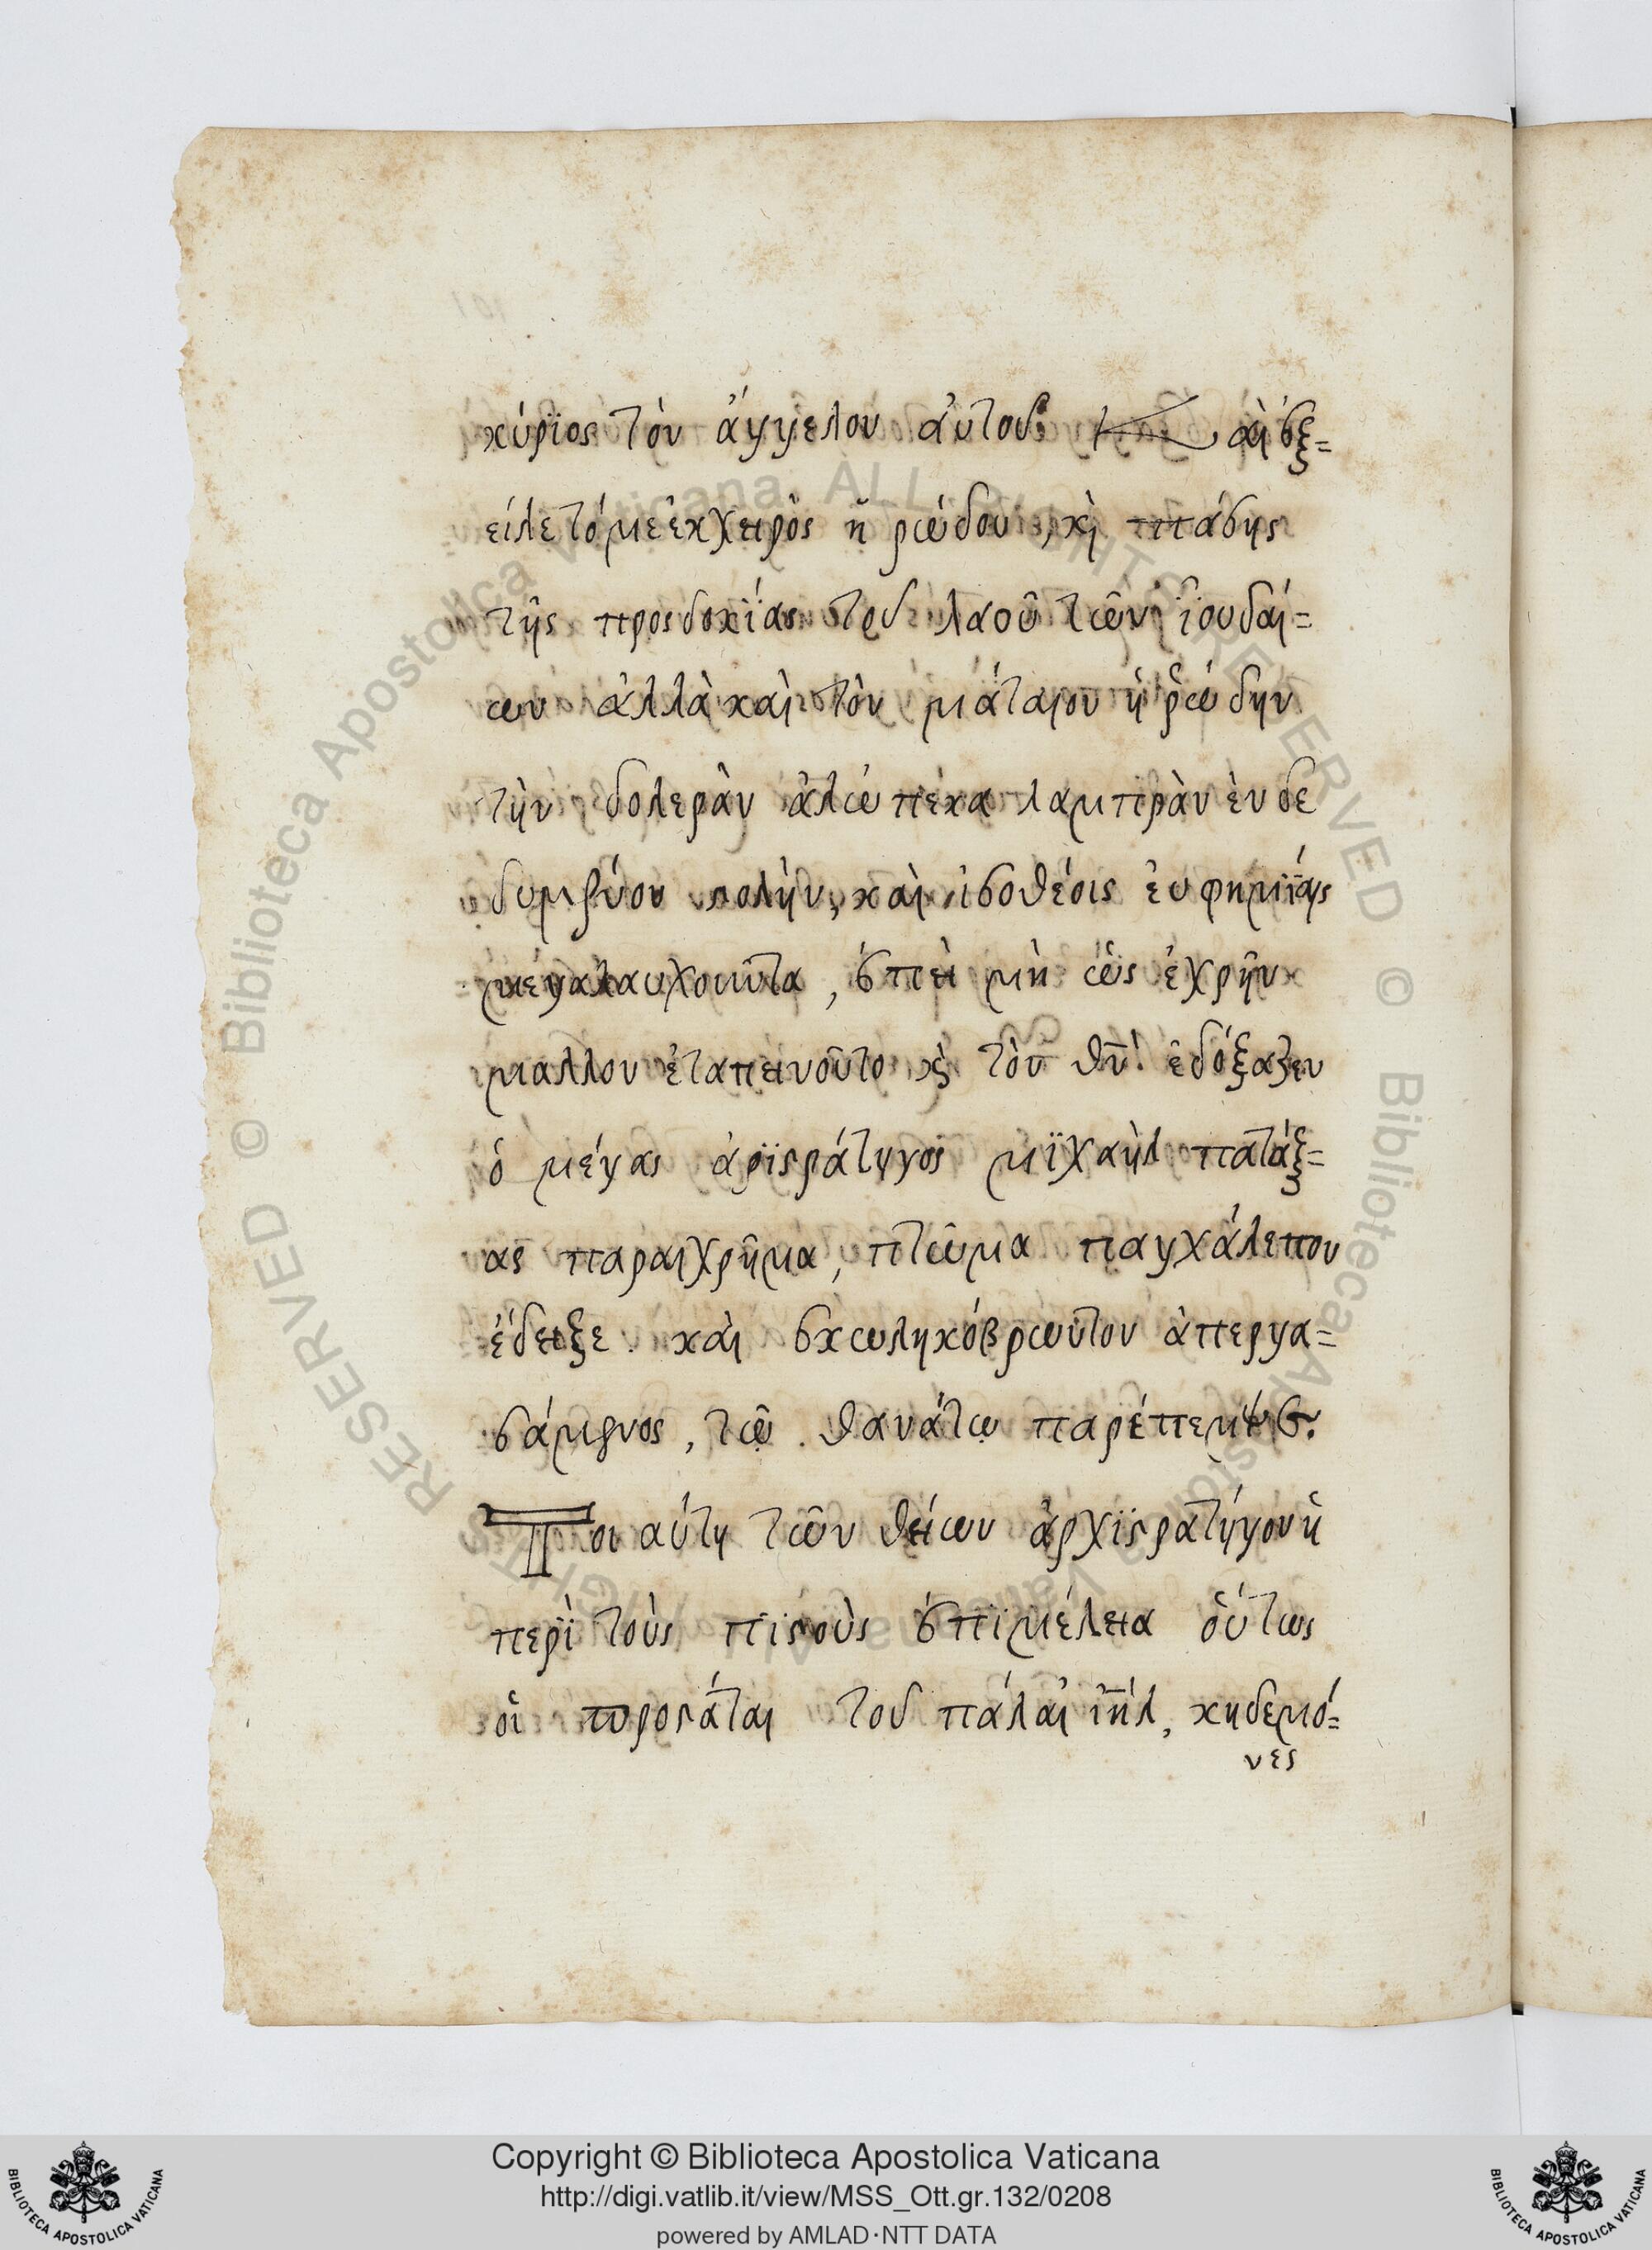 κύριος τὸν ἄγγελον ἀυτοῦ. καὶ ἐξ=
είλετόμε ἐκχειρὸς ἡρώδου, κὶ πάσης
τῆς προςδοκίας τοῦ λαοῦ τῶν ἰουδαί=
ων ἀλλὰ καὶ τὸν μάταιον ἡρώδην
τὴν δολερὰν ἀλώπεκα λαμπρὰν ἐνδε
δυμένον στολὴν, καὶ ἰσοθέοις ἐυφημίαις
μεγαλαυχοῦντα, ἐπεὶ μὴ ὡς ἐχρῆν
μαλλον ἐταπεινοῦτο κὶ τὸν θν̄ ἐδόξαζεν
ὁ μέγας ἀρϊστράτηγος μϊχαὴλ πατάξ=
ας παραιχρῆμα, πτῶμα παγχάλεπον
ἔδειξε. καὶ σκωληκόβρωτον ἀπεργα=
σάμενος, τῷ. θανάτῳ παρέπεμψεν.
Τοιαύτη τῶν θείων ἀρχϊστρατήγον ἡ
περὶ τοὺς πιστοὺς ἐπϊμέλεια ὅυτως
οἱ προστάται τοῦ πάλαι ἰη̄λ, κηδεμό=
νες
Copyright © Biblioteca Apostolica Vaticana
http://digi.vatlib.it/view/MSS_Ott.gr.132/0208
powered by AMLAD·NTT DATA
BIBLIOTECA APOSTOLICA VATICANA
BIBLIOTECA APOSTOLICA VATICANA